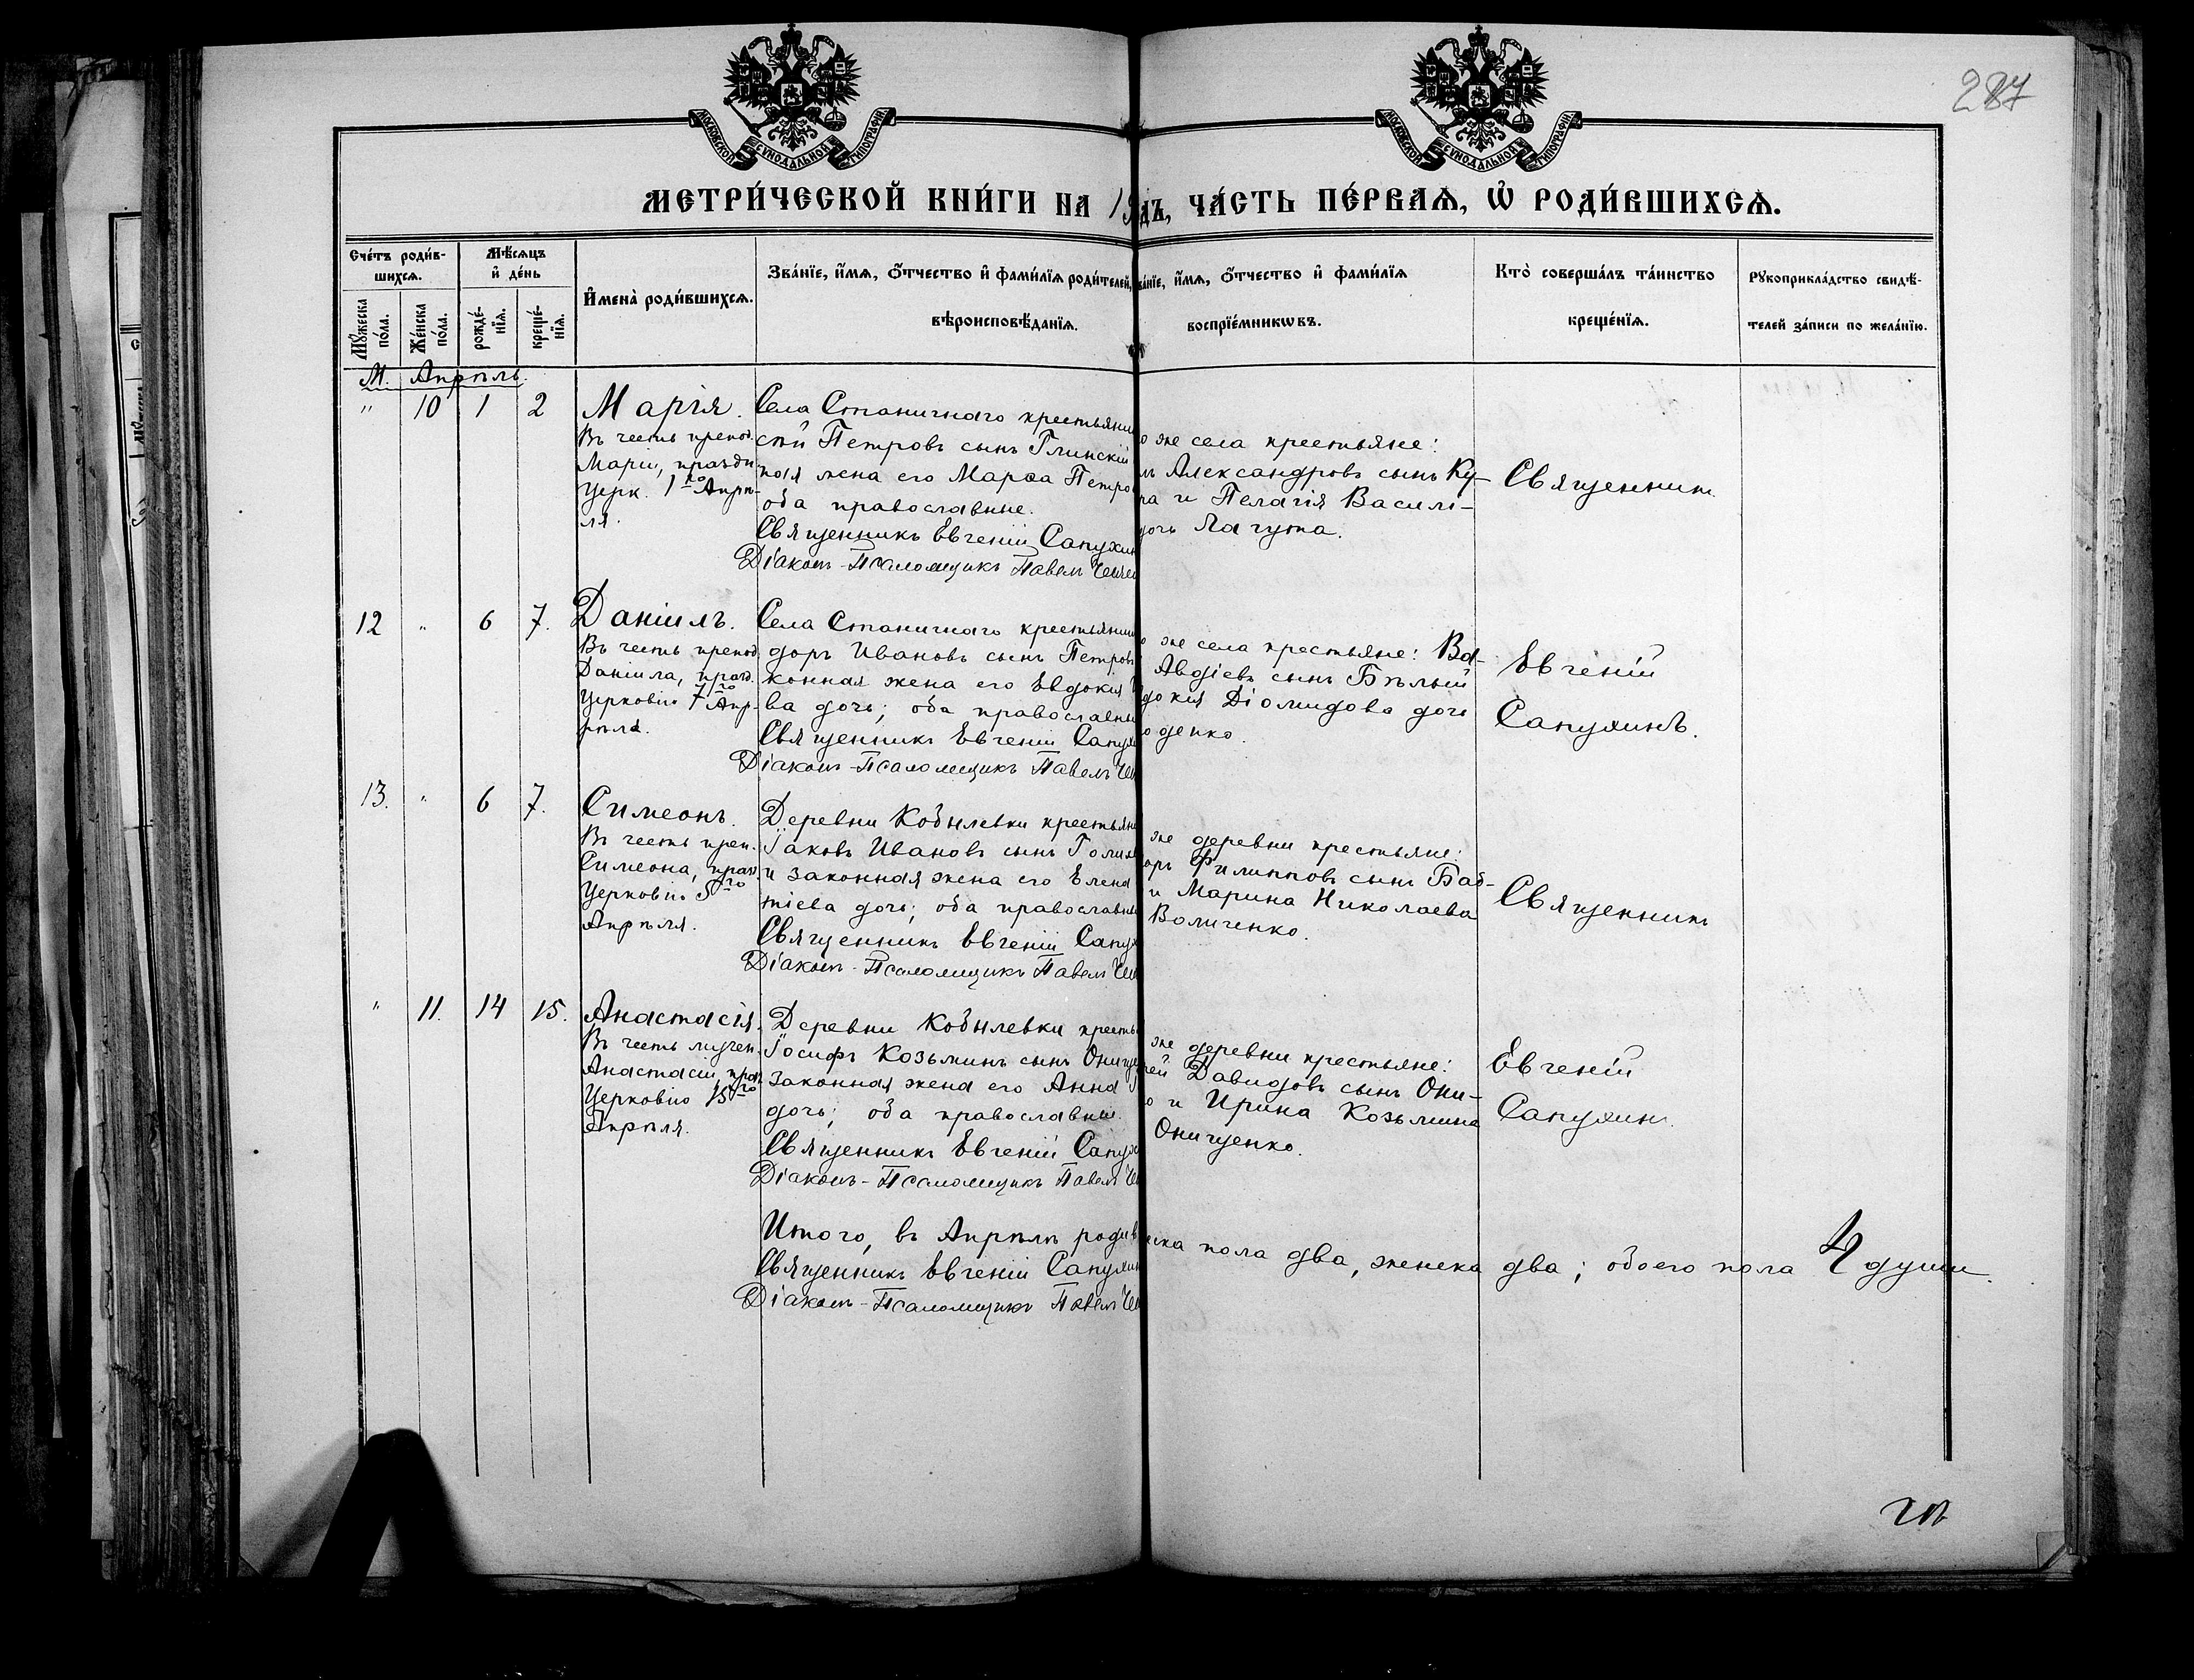 287
МОСКОВСКОЙ СѴНОДАЛЬНОЙ ТИПОГРАФІИ
МОСКОВСКОЙ СѴНОДАЛЬНОЙ ТИПОГРАФІИ
МЕТРИ́ЧЕСКОЙ КНИ́ГИ НА 19
дъ, ЧА́СТЬ ПЕ́РВАѦ, Ѡ҆ РОДИ́ВШИХСѦ.
Сче́тъ роди́в-
шихсѧ.
Мꙋ́жеска по́ла.
Же́нска по́ла.
Мѣ́сѧцъ
и҆ де́нь
рожде́-
нїѧ.
креще́-
нїѧ.
И҆мена̀ роди́вшихсѧ.
Зва́нїе, и҆́мѧ, ѻ҆́тчество и҆ фами́лїѧ роди́телей,
вѣроисповѣ́данїѧ.
ва́нїе, и҆́мѧ, ѻ҆́тчество и҆ фами́лїѧ
воспрїе́мникѡвъ.
Кто̀ соверша́лъ та́инство
креще́нїѧ.
Рꙋкоприкла́дство свидѣ́-
телей за́писи по жела́нїю.
М. Апрѣль.
" 10 1 2
Марія.
Въ честь препод.
Маріи, праздн.
Церк. 1го Апрѣ-
ля.
Села Станичнаго крестьянин
стій Петровъ сынъ Глинскій
ная жена его Марѳа Петро
оба православные.
Священникъ Евгеній Сапухин
Діаконъ-Псаломщикъ Павелъ
о же села крестьяне:
Александровъ сынъ Ку-
ра и Пелагія Василі-
дочь Лагута.
Священникъ
12 " 6 7.
Даніилъ.
Въ честь препод.
Даніила, празд.
Церковію 7го Апр-
рѣля.
Села Станичнаго крестьянин
доръ Ивановъ сынъ Петров
конная жена его Евдокія
ва дочь; оба православны
Священникъ Евгеній Сапух
Діаконъ-Псаломщикъ Павелъ
о же села крестьяне: Ва-
Авдіевъ сынъ Бѣлый
докія Діомидова дочь
оденко.
Евгеній
Сапухинъ.
13. " 6 7.
Симеонъ.
Въ честь преп.
Симеона, праз.
Церковію
Апрѣля.
Деревни Кобылевки крестьяни
Іаковъ Ивановъ сынъ
и законная жена его Елена
тіева дочь; оба православны
Священникъ Евгеній Сапух
Діаконъ-Псаломщикъ Павелъ
же деревни крестьяне:
оръ Филипповъ сынъ Баб-
и Марина Николаева
Воличенко.
Священникъ
" 11. 14 15.
Анастасія.
Въ честь мучен.
Анастасіи, праз.
Церковію 15го
Апрѣля.
Деревни Кобылевки кресть
Іосифъ Козьминъ сынъ Онище
законная жена его Анна
дочь; оба православные.
Священникъ Евгеній Сапух
Діаконъ-Псаломщикъ Павелъ
же деревни крестьяне:
ей Давидовъ сынъ Они-
о и Ирина Козьмина
Онищенко.
Евгеній
Сапухинъ.
Итого, въ Апрѣлѣ родив
Священникъ Евгеній Сапухин
Діаконъ-Псаломщикъ Павелъ
ска пола два, женска два; обоего пола 4 души.